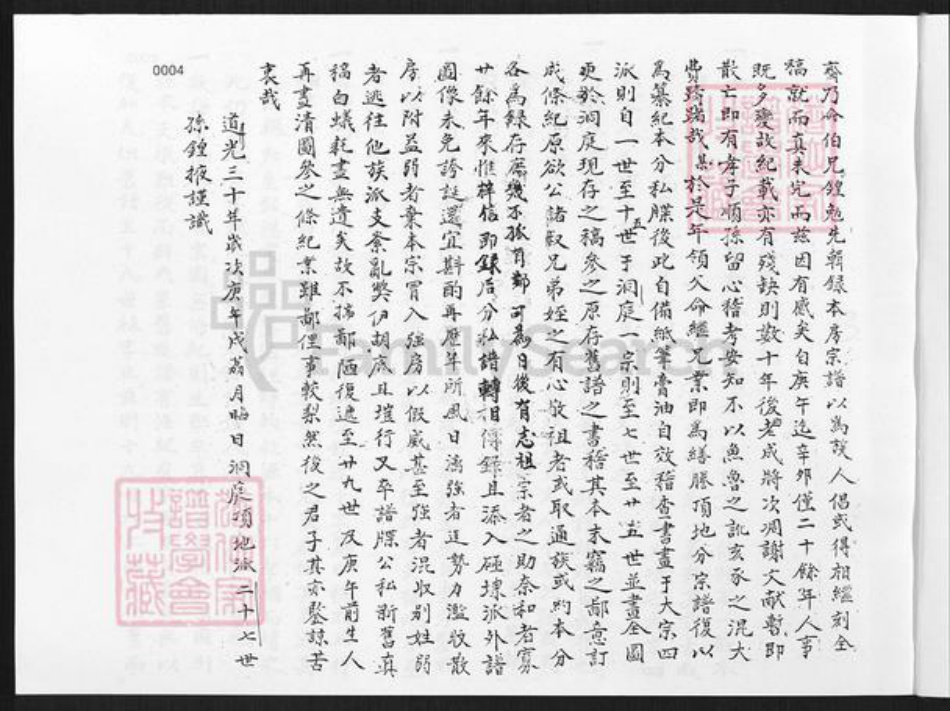 0004
齊乃命伯兄鍠勉先輯錄本房宗譜以為族人倡或得相繼刻全
稿就而真未完而茲因有感矣自庚午迄辛卯僅二十餘年人事
既多變故紀載亦有殘缺則數十年後老成將次凋謝文献暫即
散亡即有孝子順孫留心稽考安知不以魚魯之訛亥豕之混大
費躊躇哉某於是年領父命繼兄業即為繕謄項地分宗譜復以
為纂紀本分私牒後此自備紙筆膏油自效稽查書畫于大宗四
派則自一世至十五世于洞庭一宗則至七世至廿五世並畫全圖
更於洞庭現存之稿參之原存舊譜之書稽其本末竊之鄙意訂
成條紀原欲公諸叔兄弟姪之有心敬祖者或取通族或約本分
各為錄存庶幾不孤有鄰可為日後有志祖宗者之助奈和者寡
廿餘年來惟梓信即錄后分私譜轉相傳錄且添入碰埭派外譜
圖像未免誇誕還宜斟酌再歷年所風日漓強者逞勢力濫收散
房以附益弱者棄本宗冒入強房以假威甚至強者混收别姓弱
者逃往他族派支紊亂弊伊胡底且堆行又卒譜牒公私新舊真
稿白蟻耗盡無遺矣故不揣鄙陋復遞至廿九世及庚午前生人
再畫清圖參之條紀業雖鄙俚事較梨然後之君子其亦鑒諒苦
衷哉
道光三十年歲次庚午戌荔月晦日洞庭項地派二十七世
孫鍾掖謹識
FamilySearch